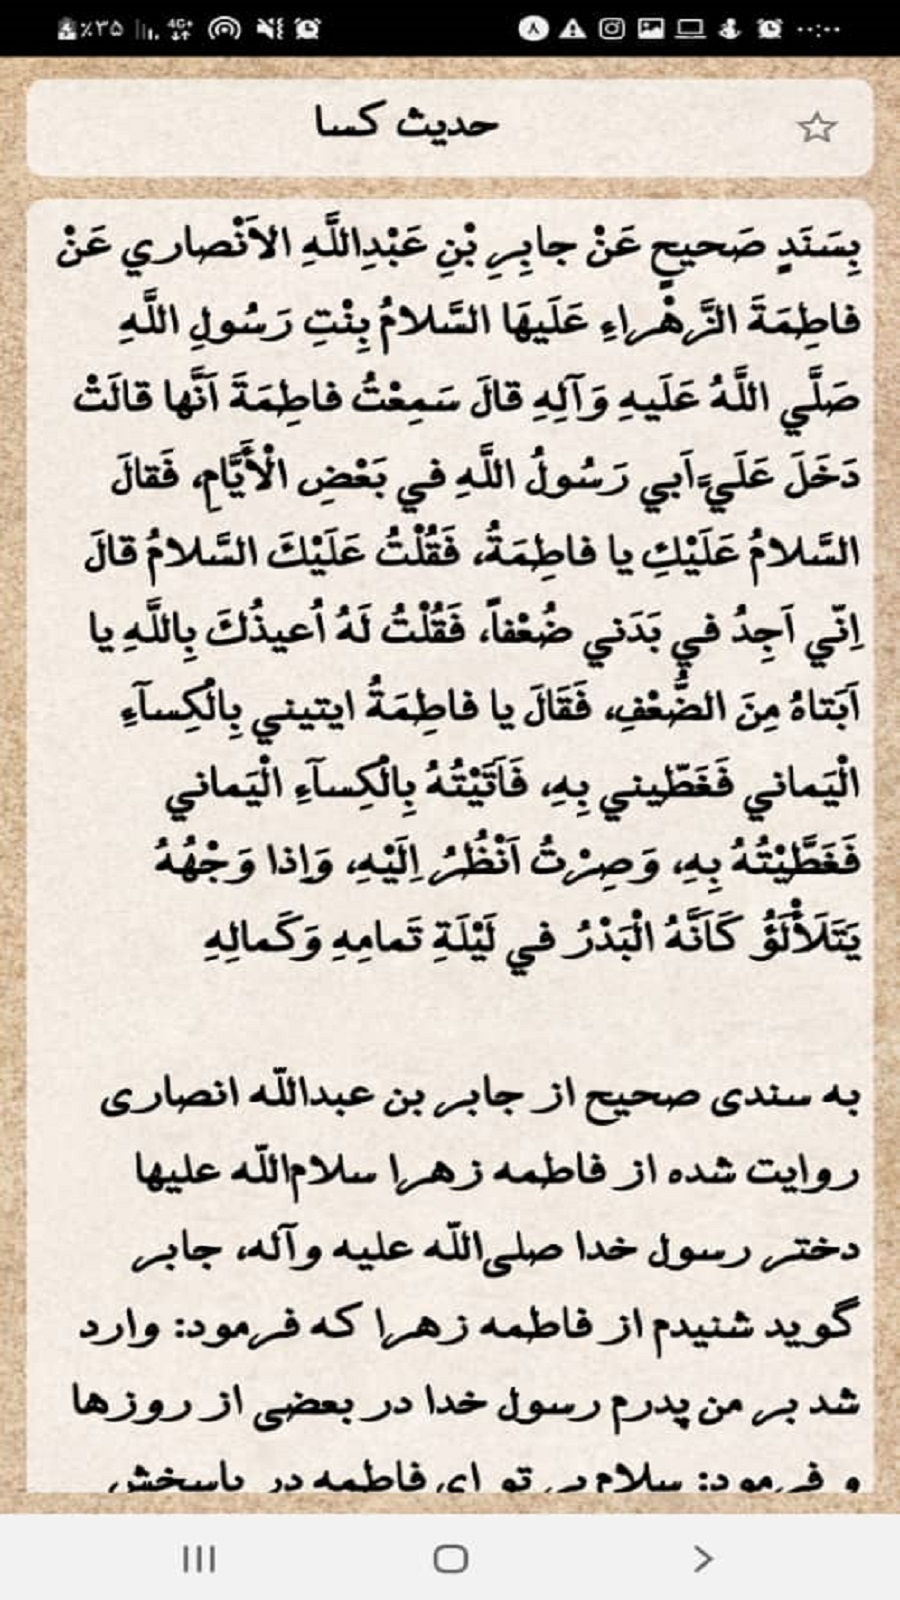 ٪۳۵ 4G+ ۸ ۰۰:۰۰
حدیث کسا
بِسَنَدٍ صَحیحٍ عَنْ جابِرِ بْنِ عَبْدِاللَّهِ الاَنْصاري عَنْ
فاطِمَةَ الزَّهْراءِ عَلَيهَا السَّلامُ بِنْتِ رَسُولِ اللَّهِ
صَلَّي اللَّهُ عَلَيهِ وَآلِهِ قالَ سَمِعْتُ فاطِمَةَ اَنَّها قالَتْ
دَخَلَ عَلَيَّ اَبي رَسُولُ اللَّهِ في بَعْضِ الْأَيَّامِ، فَقالَ
السَّلامُ عَلَيْكِ يا فاطِمَةُ، فَقُلْتُ عَلَيْكَ السَّلامُ قالَ
اِنّي اَجِدُ في بَدَني ضُعْفاً، فَقُلْتُ لَهُ اُعيذُكَ بِاللَّهِ يا
اَبَتاهُ مِنَ الضُّعْفِ، فَقَالَ يا فاطِمَةُ ايتيني بِالْكِسآءِ
الْيَماني فَغَطّيني بِهِ، فَاَتَيْتُهُ بِالْكِسآءِ الْيَماني
فَغَطَّيْتُهُ بِهِ، وَصِرْتُ اَنْظُرُ اِلَيْهِ، وَاِذا وَجْهُهُ
يَتَلَأْلَؤُ كَاَنَّهُ الْبَدْرُ في لَيْلَةِ تَمامِهِ وَكَمالِهِ
به سندی صحیح از جابر بن عبداللّه انصاری
روایت شده از فاطمه زهرا سلام‌اللّه علیها
دختر رسول خدا صلی‌اللّه علیه وآله، جابر
گوید شنیدم از فاطمه زهرا که فرمود: وارد
شد بر من پدرم رسول خدا در بعضی از روزها
و فرمود: سلام بر تو ای فاطمه در پاسخش